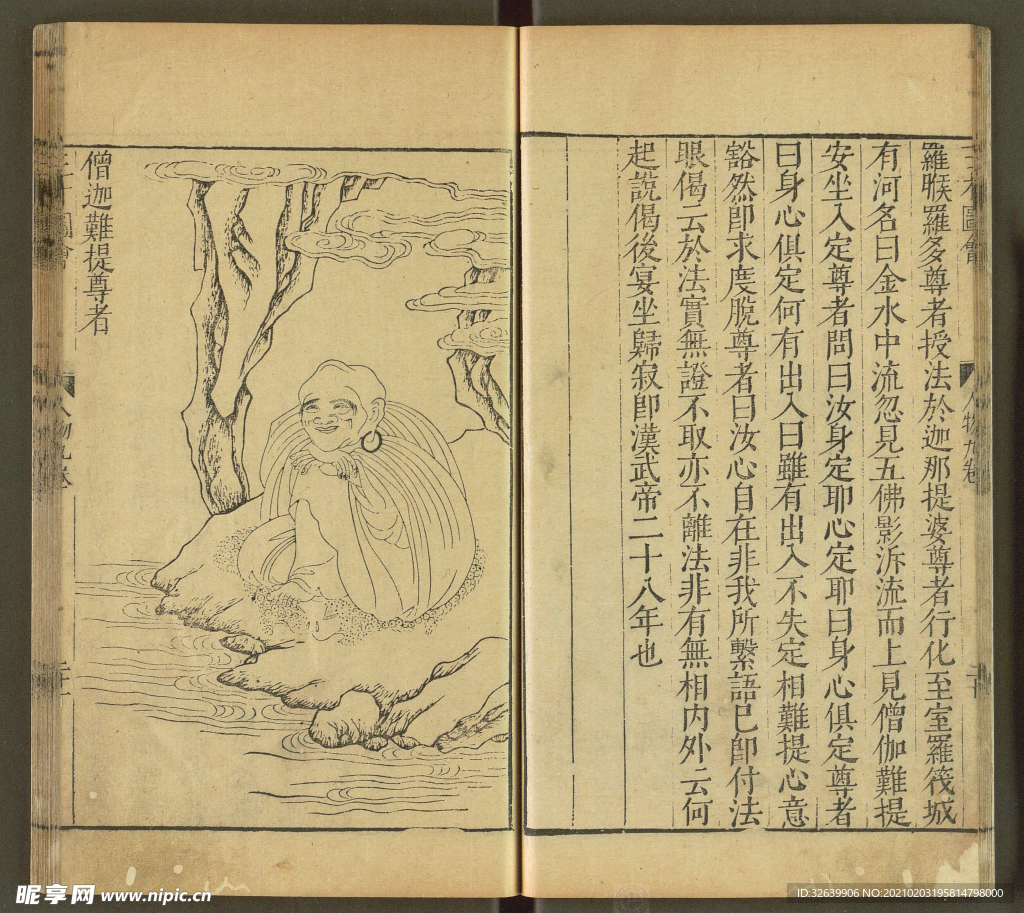 三才圖會
人物九卷
羅睺羅多尊者授法於迦那提婆尊者行化至室羅筏城
有河名曰金水中流忽見五佛影泝流而上見僧伽難提
安坐入定尊者問曰汝身定耶心定耶曰身心俱定尊者
曰身心俱定何有出入曰雖有出入不失定相難提心意
豁然卽求度脫尊者曰汝心自在非我所繫語已卽付法
眼偈云於法實無證不取亦不離法非有無相內外云何
起說偈後宴坐歸寂卽漢武帝二十八年也
僧迦難提尊者
昵享网 www.nipic.cn
ID:32639906 NO:20210203195814798000